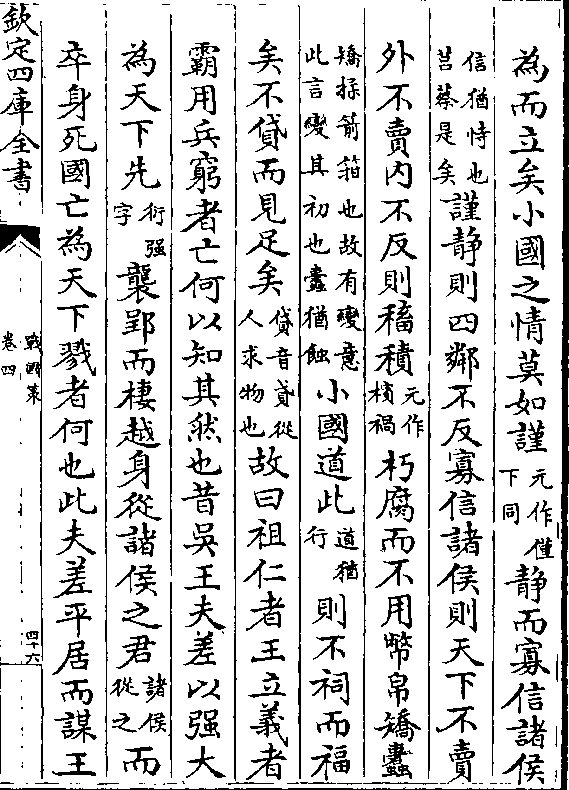 為而立矣小國之情莫如謹元作僅下同靜而寡信諸侯
信猶恃也莒蔡是矣謹靜則四鄰不反寡信諸侯則天下不賣
外不賣内不反則稸積元作檳禍朽腐而不用幣帛矯蠧
矯揉箭箝也故有變意此言變其初也蠧猶蝕小國道此道猶行則不祠而福
矣不貸而見足矣貸音貣從人求物也故曰祖仁者王立義者
霸用兵窮者亡何以知其然也昔吳王夫差以强大
為天下先衍强字襲郢而棲越身從諸侯之君諸侯從之而
卒身死國亡為天下戮者何也此夫差平居而謀王
欽定四庫全書
戰國策
卷四
四十六